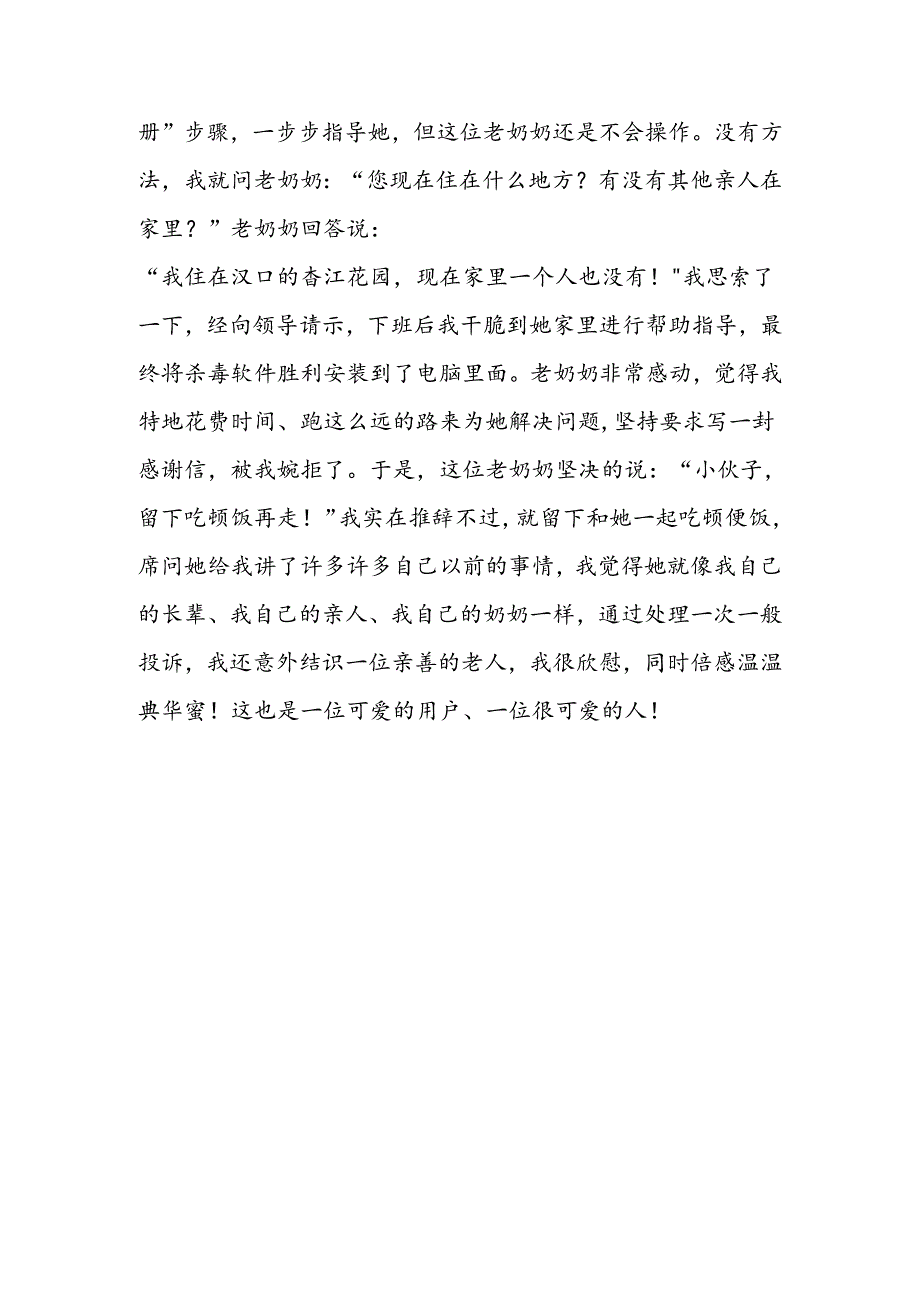 册”步骤，一步步指导她，但这位老奶奶还是不会操作。没有方
法，我就问老奶奶：“您现在住在什么地方？有没有其他亲人在
家里？”老奶奶回答说：
“我住在汉口的杳江花园，现在家里一个人也没有！"我思索了
一下，经向领导请示，下班后我干脆到她家里进行帮助指导，最
终将杀毒软件胜利安装到了电脑里面。老奶奶非常感动，觉得我
特地花费时间、跑这么远的路来为她解决问题,坚持要求写一封
感谢信，被我婉拒了。于是，这位老奶奶坚决的说：“小伙子，
留下吃顿饭再走！”我实在推辞不过，就留下和她一起吃顿便饭，
席问她给我讲了许多许多自己以前的事情，我觉得她就像我自己
的长辈、我自己的亲人、我自己的奶奶一样，通过处理一次一般
投诉，我还意外结识一位亲善的老人，我很欣慰，同时倍感温温
典华蜜！这也是一位可爱的用户、一位很可爱的人！